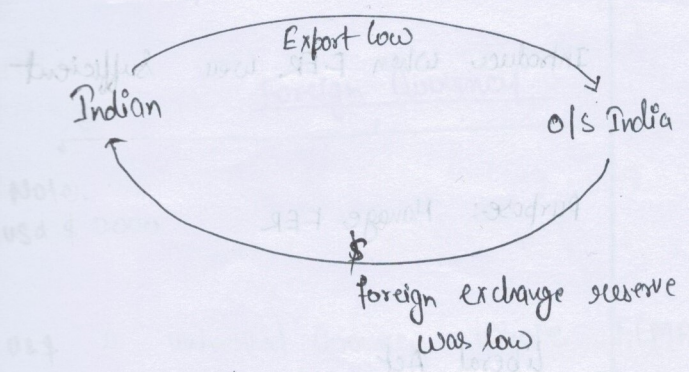 Export low
Indian
O/S India
$
foreign exchange reserve
was low